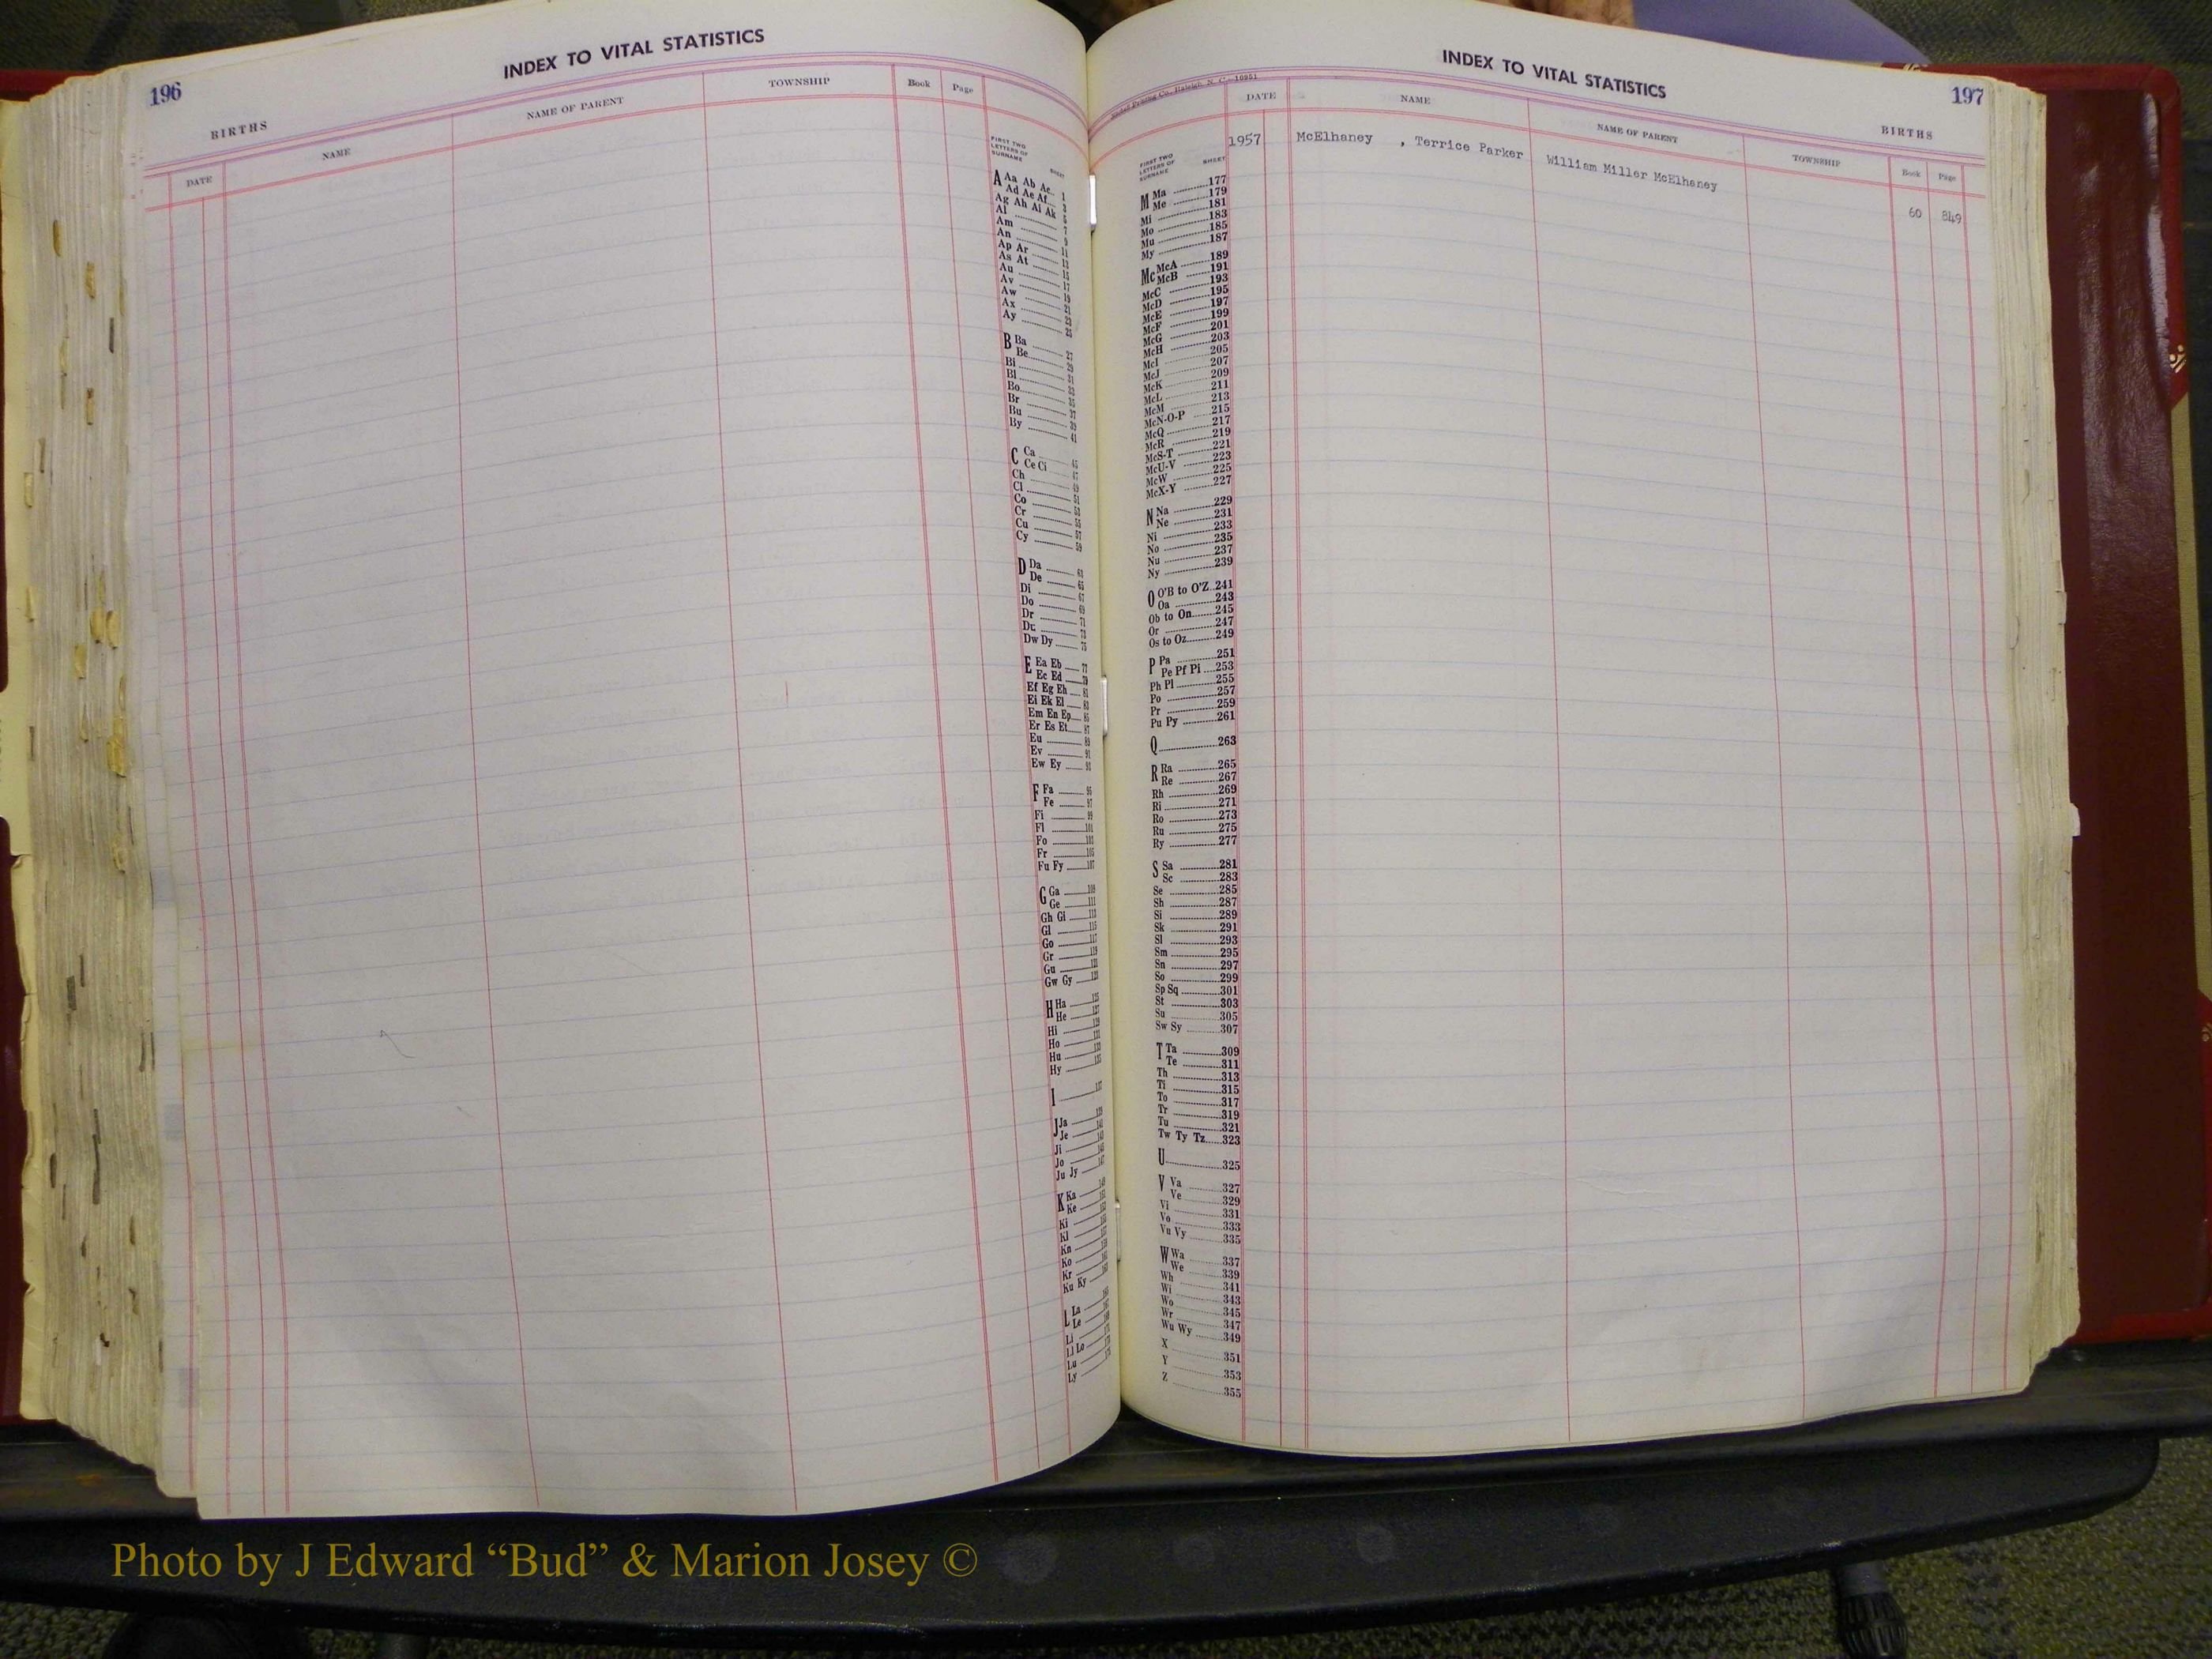 196
INDEX TO VITAL STATISTICS
BIRTHS
DATE NAME NAME OF PARENT TOWNSHIP Book Page
FIRST TWO
LETTERS OF
SURNAME SHEET
A Aa Ab Ac 1
Ad Ae Af 3
Ag Ah Ai Ak 5
Al 7
Am 9
An 11
Ap Ar 13
As At 15
Au 17
Av 19
Aw 21
Ax 23
Ay 25
B Ba
Be
Bi
Bl
Bo
Br
Bu
By 41
C Ca
Ce Ci
Ch
Cl
Co
Cr
Cu
Cy
D Da
De
Di
Do
Dr
Du
Dw Dy
E Ea Eb
Ec Ed
Ef Eg Eh
Ei Ek El
Em En Ep
Er Es Et
Eu
Ev
Ew Ey
F Fa
Fe
Fi
Fl
Fo
Fr
Fu Fy
G Ga
Ge
Gh Gi
Gl
Go
Gr
Gu
Gw Gy
H Ha
He
Hi
Ho
Hu
Hy
I
J Ja
Je
Ji
Jo
Ju Jy
K Ka
Ke
Ki
Kl
Kn
Ko
Kr
Ku Ky
L La
Le
Li
Ll Lo
Lu
Ly
197
INDEX TO VITAL STATISTICS
Printing Co., Raleigh, N. C. 10951
BIRTHS
DATE NAME NAME OF PARENT TOWNSHIP Book Page
1957 McElhaney , Terrice Parker William Miller McElhaney 60 849
FIRST TWO
LETTERS OF
SURNAME SHEET
M Ma 177
Me 179
Mi 181
Mo 183
Mu 185
My 187
Mc McA 189
McB 191
McC 193
McD 195
McE 197
McF 199
McG 201
McH 203
McI 205
McJ 207
McK 209
McL 211
McM 213
McN-O-P 215
McQ 217
McR 219
McS-T 221
McU-V 223
McW 225
McX-Y 227
N Na 229
Ne 231
Ni 233
No 235
Nu 237
Ny 239
O O'B to O'Z 241
Oa 243
Ob to On 245
Or 247
Os to Oz 249
P Pa 251
Pe Pf Pi 253
Ph Pl 255
Po 257
Pr 259
Pu Py 261
Q 263
R Ra 265
Re 267
Rh 269
Ri 271
Ro 273
Ru 275
Ry 277
S Sa 281
Sc 283
Se 285
Sh 287
Si 289
Sk 291
Sl 293
Sm 295
Sn 297
So 299
Sp Sq 301
St 303
Su 305
Sw Sy 307
T Ta 309
Te 311
Th 313
Ti 315
To 317
Tr 319
Tu 321
Tw Ty Tz 323
U 325
V Va 327
Ve 329
Vi 331
Vo 333
Vu Vy 335
W Wa 337
We 339
Wh 341
Wi 343
Wo 345
Wr 347
Wu Wy 349
X 351
Y 353
Z 355
Photo by J Edward “Bud” & Marion Josey ©